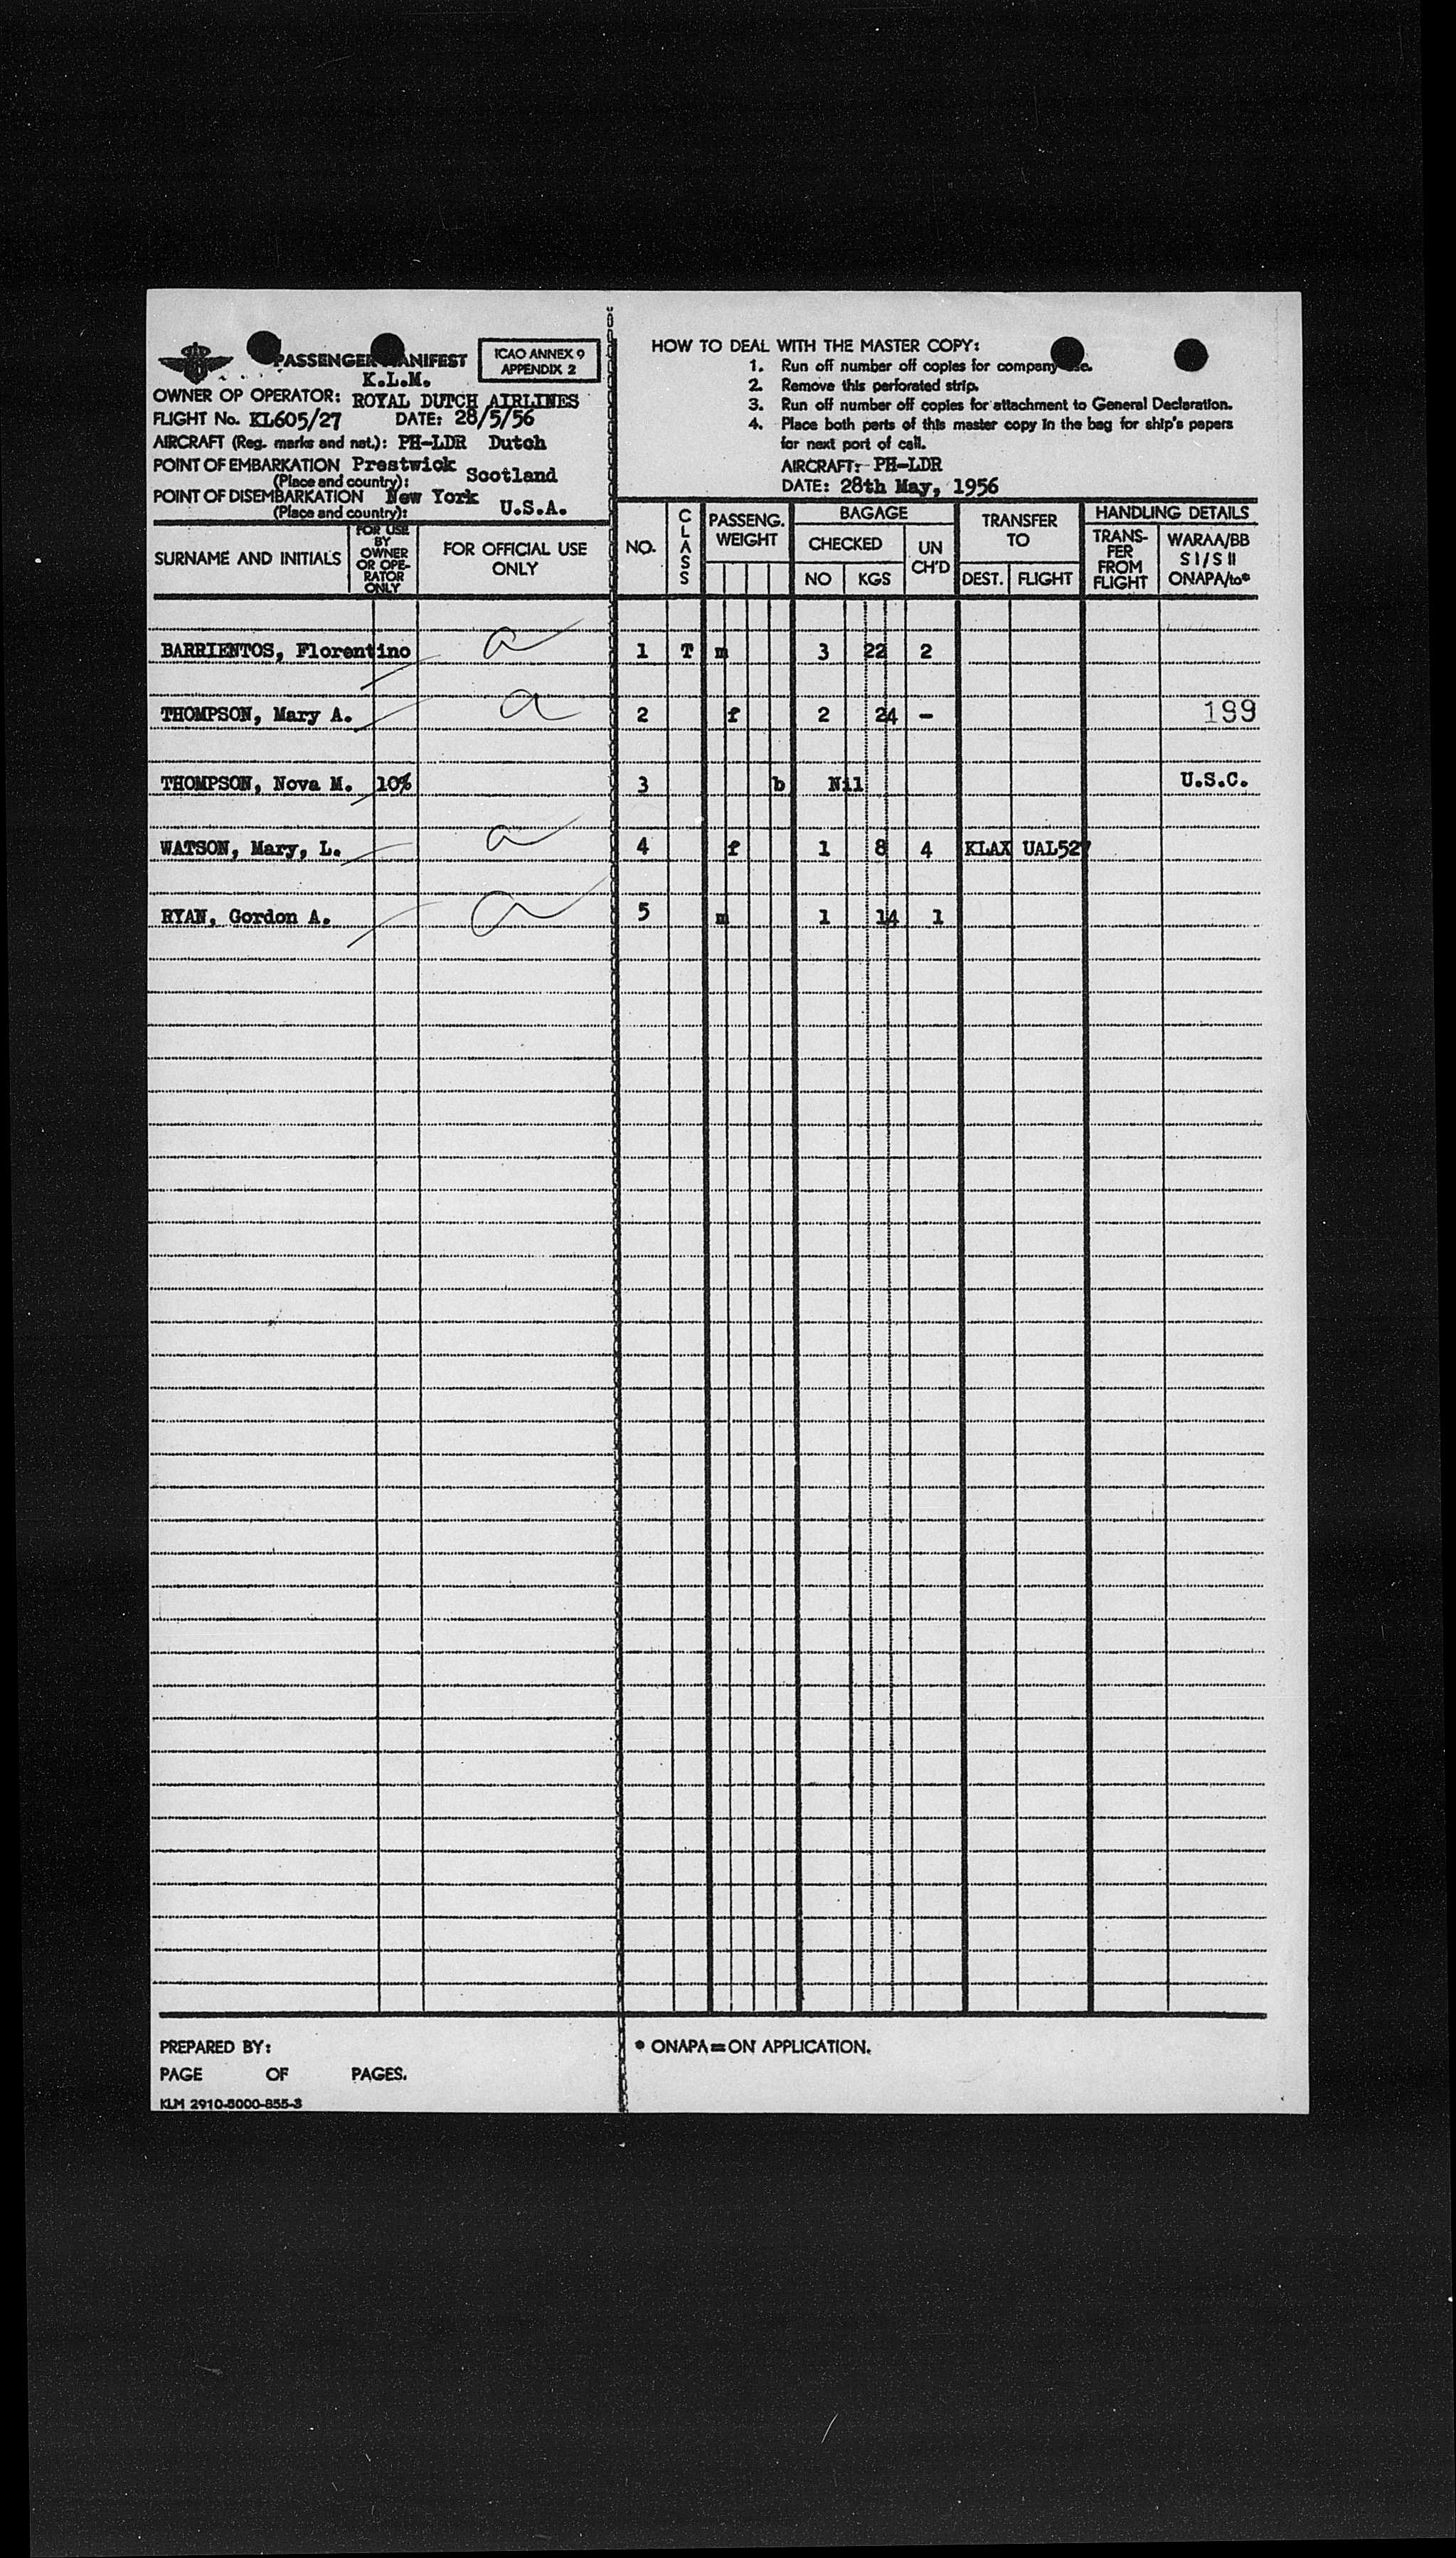 PASSENGER MANIFEST
ICAO ANNEX 9
APPENDIX 2
K.L.M.
OWNER OP OPERATOR: ROYAL DUTCH AIRLINES
FLIGHT No. KL605/27 DATE: 28/5/56
AIRCRAFT (Reg. marks and nat.): PH-LDR Dutch
POINT OF EMBARKATION Prestwick Scotland
(Place and country):
POINT OF DISEMBARKATION New York U.S.A.
(Place and country):
HOW TO DEAL WITH THE MASTER COPY:
1. Run off number off copies for company use.
2. Remove this perforated strip.
3. Run off number off copies for attachment to General Declaration.
4. Place both parts of this master copy in the bag for ship's papers
for next port of call.
AIRCRAFT: PH-LDR
DATE: 28th May, 1956
SURNAME AND INITIALS
FOR USE
BY
OWNER
OR OPE-
RATOR
ONLY
FOR OFFICIAL USE
ONLY
NO.
CLASS
PASSENG.
WEIGHT
BAGAGE
CHECKED
NO KGS
UN
CH'D
TRANSFER
TO
DEST. FLIGHT
HANDLING DETAILS
TRANS-
FER
FROM
FLIGHT
WARAA/BB
S I/S II
ONAPA/to*
BARRIENTOS, Florentino a 1 T m 3 22 2
THOMPSON, Mary A. a 2 f 2 24 - 199
THOMPSON, Nova M. 10% 3 b Nil U.S.C.
WATSON, Mary, L. a 4 f 1 8 4 KLAX UAL527
RYAN, Gordon A. a 5 m 1 14 1
PREPARED BY:
PAGE OF PAGES.
KLM 2910-5000-855-3
* ONAPA=ON APPLICATION.